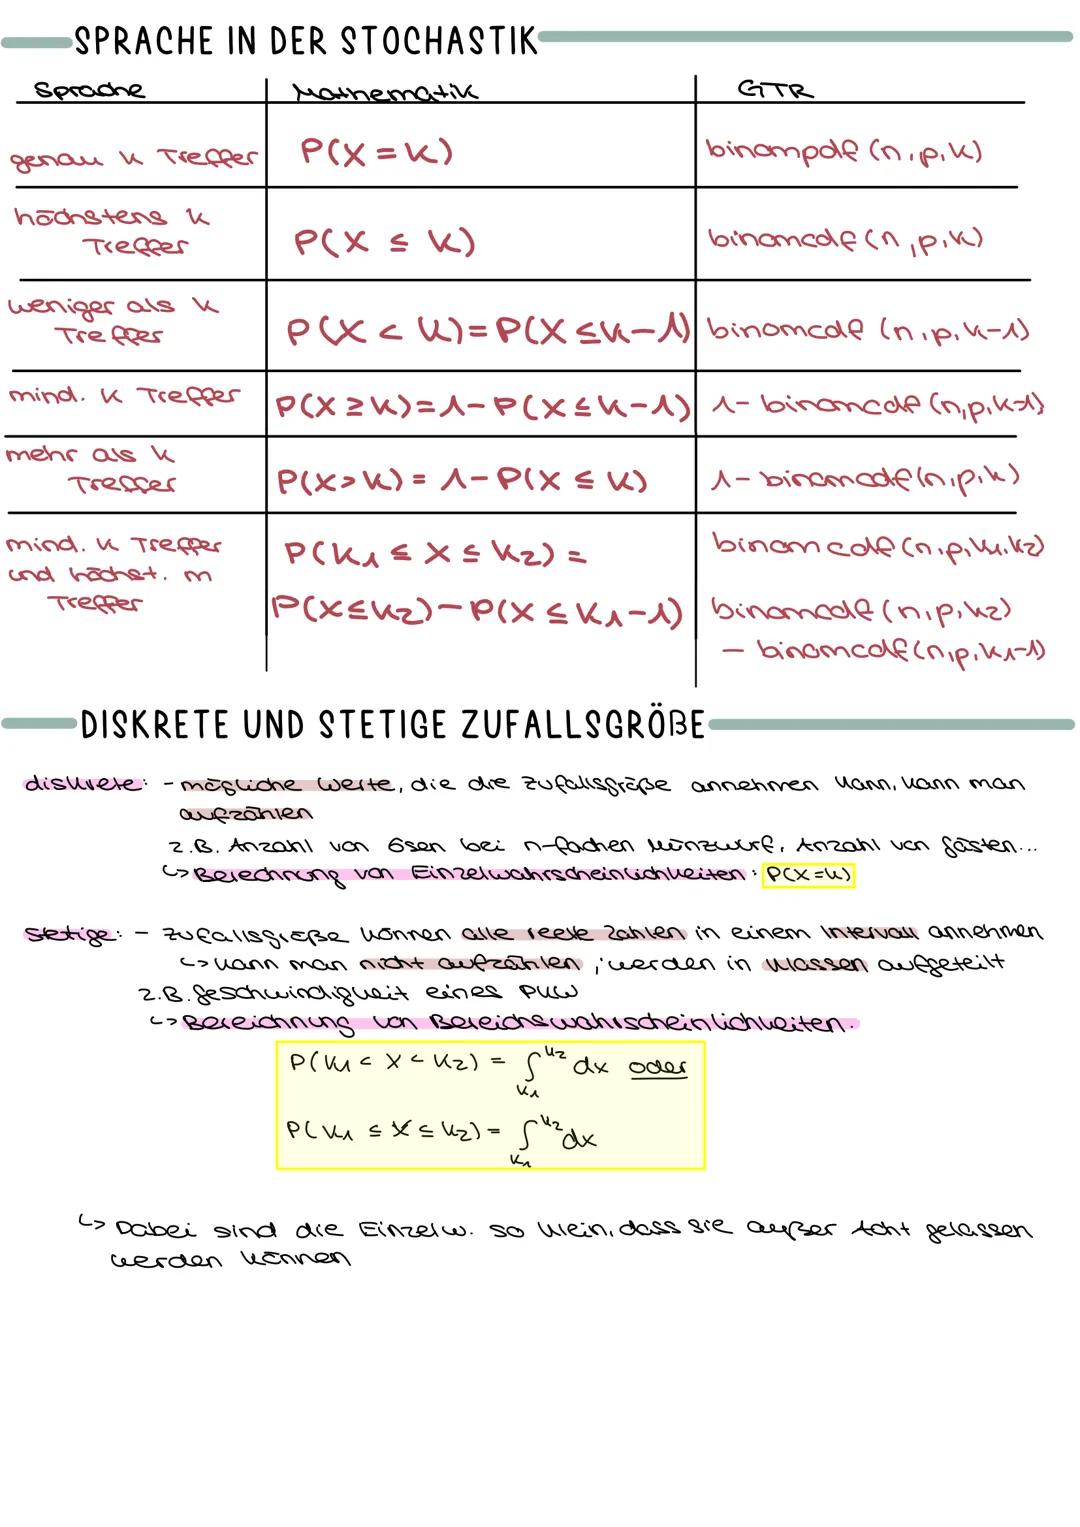 SPRACHE IN DER STOCHASTIK
Sprache Mathematik GTR
genau k Treffer P(X = k) binompdf (n,p,k)
höchstens k
Treffer P(X ≤ k) binomcdf (n,p,k)
weniger als k
Treffer P(X < k) = P(X ≤ k-1) binomcdf (n,p,k-1)
mind. k Treffer P(X ≥ k) = 1 - P(X ≤ k-1) 1 - binomcdf (n,p,k-1)
mehr als k
Treffer P(X > k) = 1 - P(X ≤ k) 1 - binomcdf (n,p,k)
mind. k Treffer P(k₁ ≤ X ≤ k₂) = binomcdf (n,p,k₁,k₂)
und höchst. m
Treffer P(X ≤ k₂) - P(X ≤ k₁-1) binomcdf (n,p,k₂)
- binomcdf (n,p,k₁-1)
DISKRETE UND STETIGE ZUFALLSGRÖßE
diskrete: - mögliche Werte, die die Zufallsgröße annehmen kann, kann man
aufzählen
z.B. Anzahl von 6sen bei n-fachen Münzwurf, Anzahl von Gästen...
↳ Berechnung von Einzelwahrscheinlichkeiten: P(X = k)
stetige: - Zufallsgröße können alle reele Zahlen in einem Intervall annehmen
↳ kann man nicht aufzählen, werden in Klassen aufgeteilt
z.B. Geschwindigkeit eines PKW
↳ Bereichnung von Bereichswahrscheinlichkeiten.
P(k₁ < X < k₂) = ∫ₖ₁ᵏ² dx oder
P(k₁ ≤ X ≤ k₂) = ∫ₖ₁ᵏ² dx
↳ Dabei sind die Einzelw. so klein, dass sie außer Acht gelassen
werden können